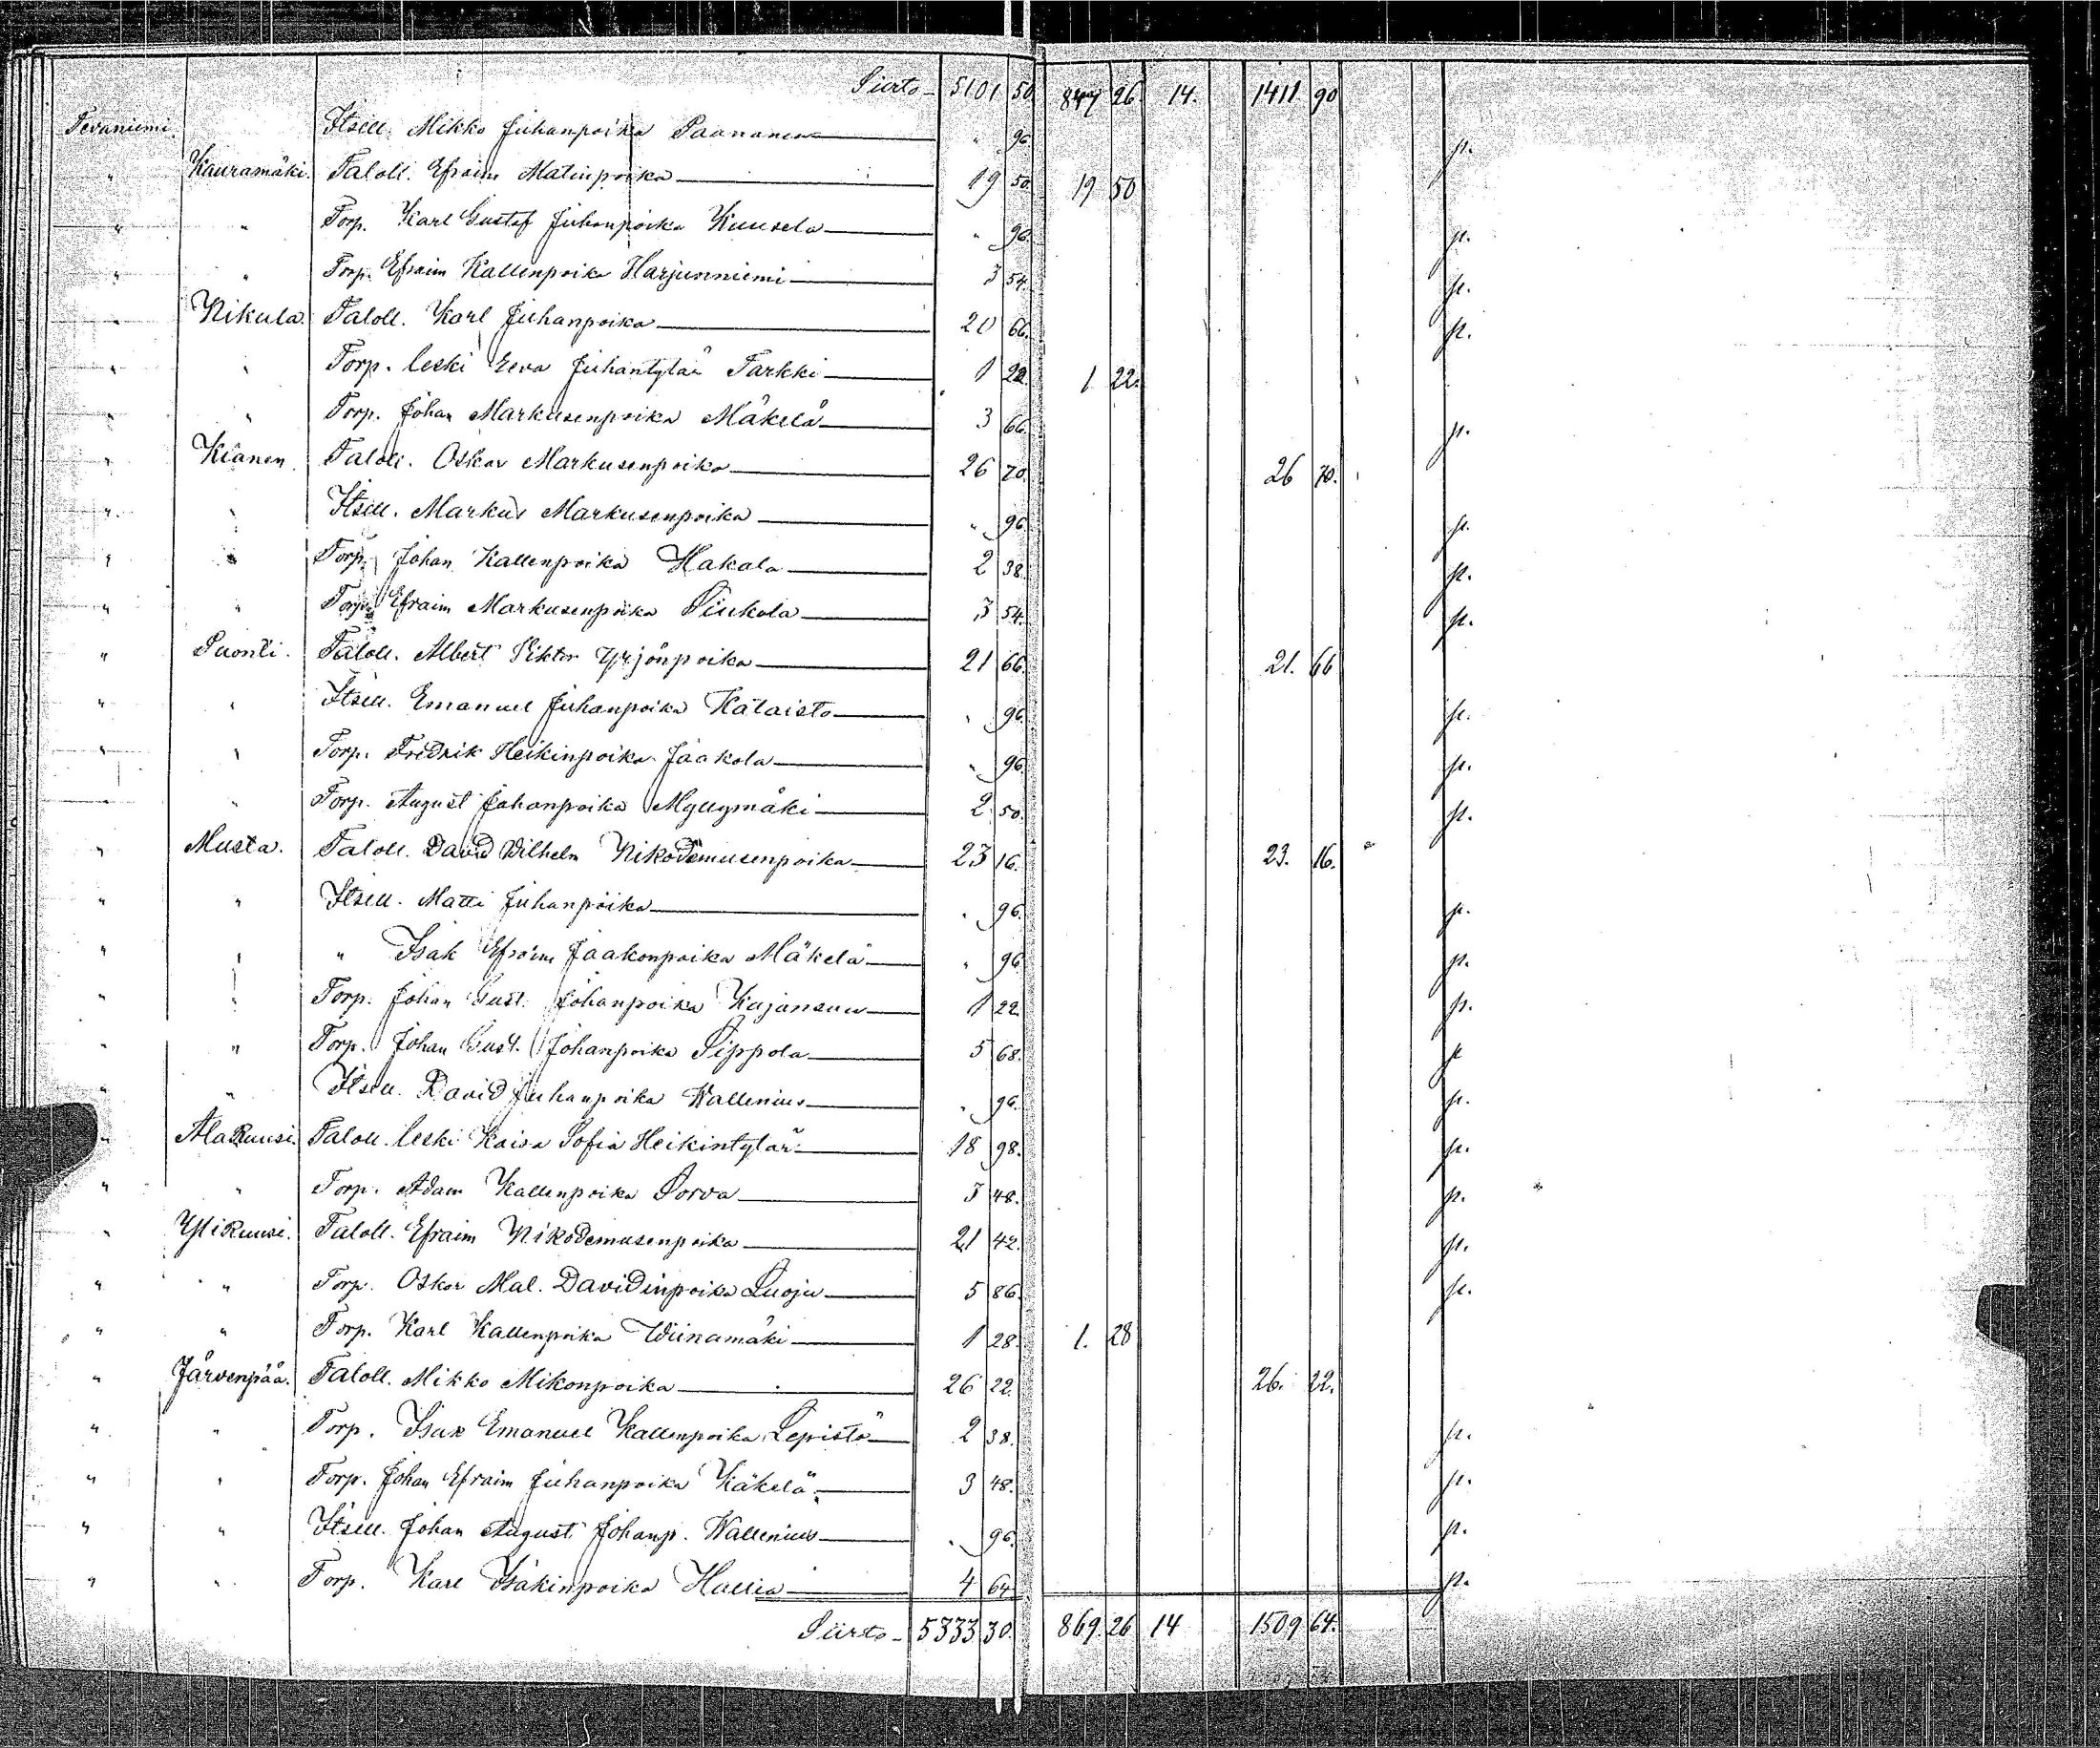 Siirto 5101 50 847 26 14. 1411 90
Tevaniemi. Itsell. Mikko Juhanpoika Paananen " 96. pl.
" Kauramäki. Taloll. Efraim Matinpoika 19 50. 19 50
" " Torp. Karl Gustaf Juhanpoika Kuusela " 96. pl.
" " Torp. Efraim Kallenpoika Harjunniemi 3 54. pl.
" Nikula. Taloll. Karl Juhanpoika 20 66. pl.
" " Torp. leski Eeva Juhantytär Tarkki 1 22. 1 22.
" " Torp. Johan Markusenpoika Mäkelä 3 66. pl.
" Kiänen Taloll. Oskar Markusenpoika 26 70. 26 70.
" " Itsell. Markus Markusenpoika " 96. pl.
" " Torp. Johan Kallenpoika Hakala 2 38. pl.
" " Torp. Efraim Markusenpoika Siukola 3 54. pl.
" Puonti. Taloll. Albert Viktor Yrjönpoika 21 66. 21. 66
" " Itsell. Emanuel Juhanpoika Kataisto " 96. pl.
" " Torp. Fredrik Heikinpoika Jaakola " 96. pl.
" " Torp. August Johanpoika Myllymäki 2 50. pl.
" Musta. Taloll. David Wilhelm Nikodemusenpoika 23 16. 23. 16.
" " Itsell. Matti Juhanpoika " 96. pl.
" " " Isak Efraim Jaakonpoika Mäkelä " 96. pl.
" " Torp. Johan Gust. Johanpoika Kujansuu 1 22. pl.
" " Torp. Johan Gust. Johanpoika Sippola 5 68. pl
" " Itsell. David Juhanpoika Wallenius " 96. pl.
" AlaRuusi. Taloll. leski Kaisa Sofia Heikintytär 18 98. pl.
" " Torp. Adam Kallenpoika Sorva 3 48. pl.
" YliRuusi. Taloll. Efraim Nikodemusenpoika 21 42. pl.
" " Torp. Oskar Mal. Davidinpoika Luoju 5 86. pl.
" " Torp. Karl Kallenpoika Wiinamäki 1 28. 1. 28
" Järvenpää. Taloll. Mikko Mikonpoika 26 22. 26. 22.
" " Torp. Isak Emanuel Kallenpoika Lepistö 2 38. pl.
" " Torp. Johan Efraim Juhanpoika Käkelä 3 48. pl.
" " Itsell. Johan August Johanp. Wallenius " 96. pl.
" " Torp. Karl Isakinpoika Hallia 4 64. pl.
Siirto 5333 30. 869. 26 14 1509 64.